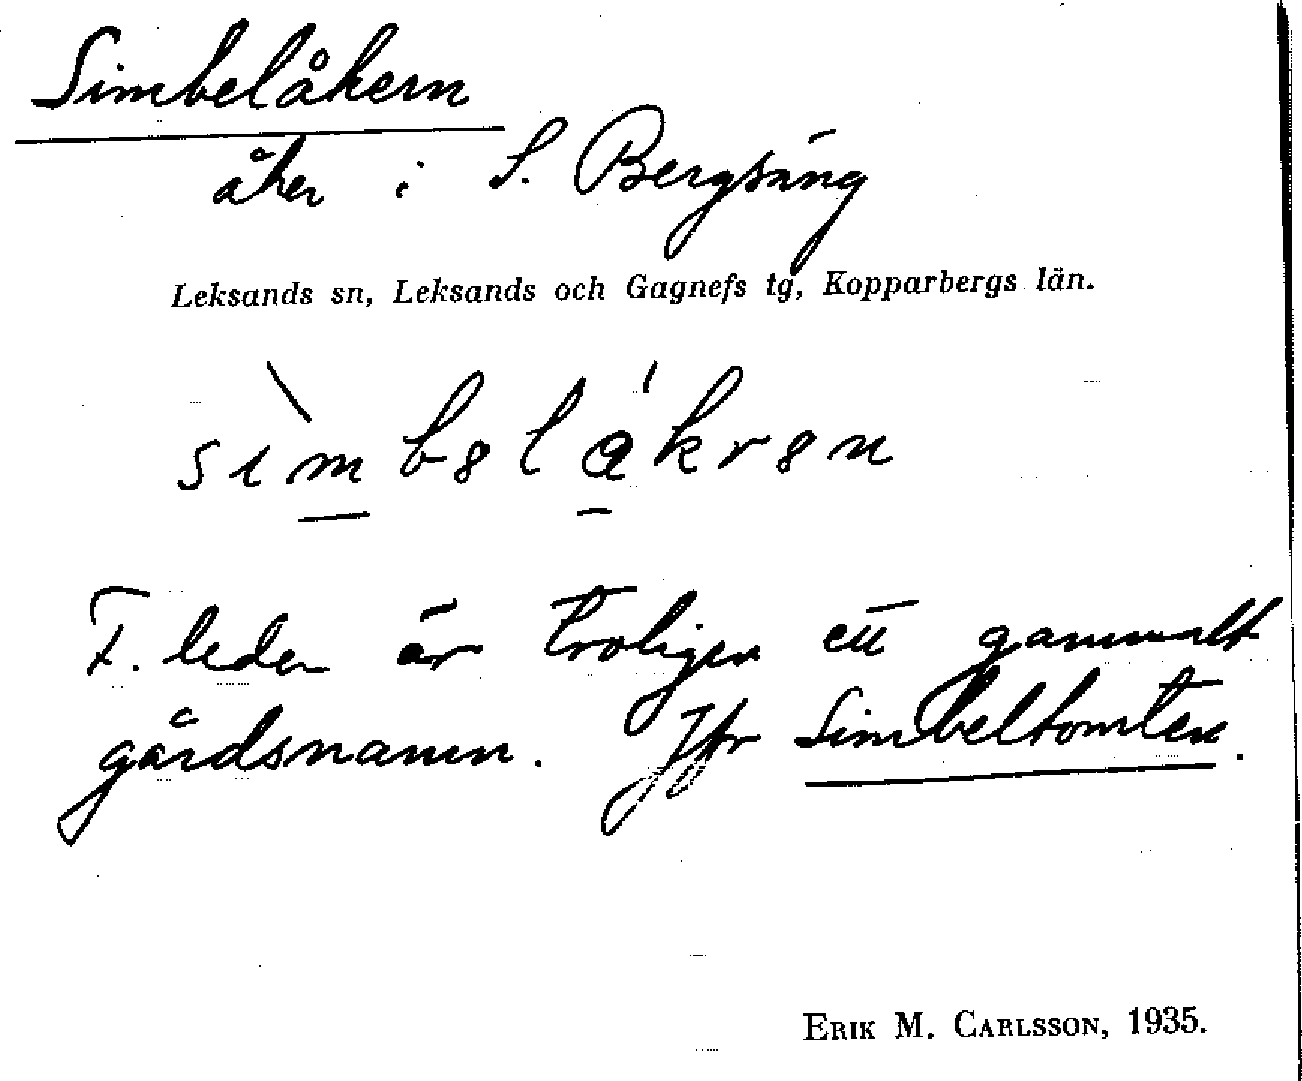 Simbelåkern
åker i S. Bergsäng
Leksands sn, Leksands och Gagnefs tg, Kopparbergs län.
F. leden är troligen ett gammalt
gårdsnamn. Jfr Simbeltomten.
ERIK M. CARLSSON, 1935.